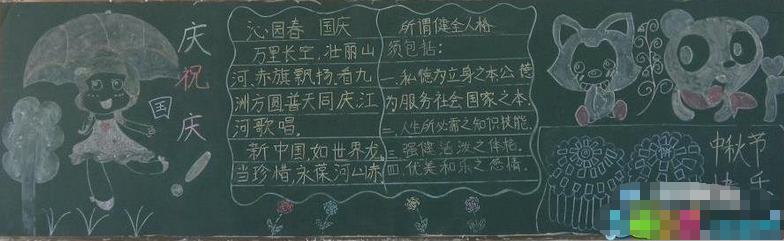 庆祝国庆！
沁园春 国庆
万里长空，壮丽山
河，赤旗飘扬，看九
洲方圆普天同庆，江
河歌唱。
新中国，如世界龙，
当珍惜，永葆河山赤
所谓健全人格
须包括：
一、私德为立身之本公德
为服务社会国家之本
二、人生所必需之知识技能.
三、强健活泼之体格.
四、优美和乐之感情.
中秋节
快乐